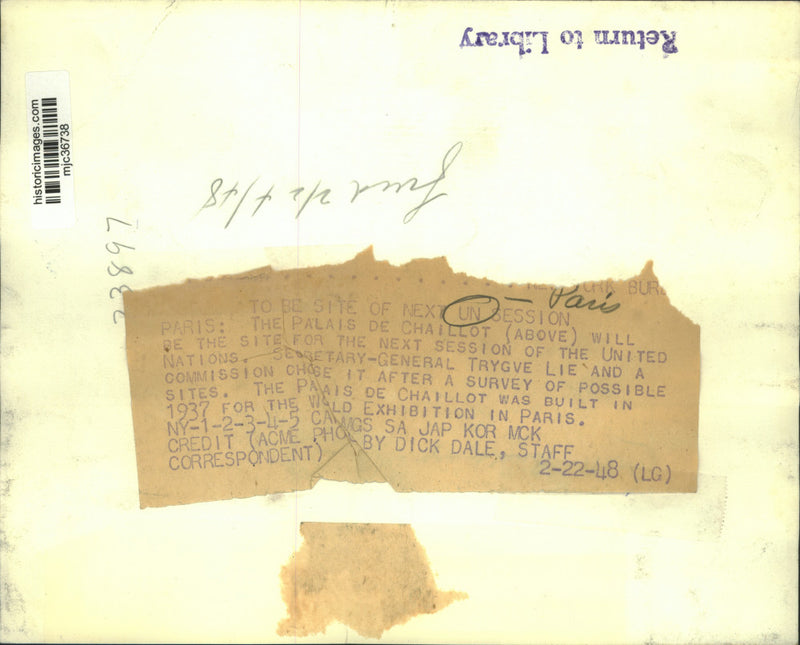 Return to Library
historicimages.com
mjc36738
2/24/48
23897
YORK BUR
TO BE SITE OF NEXT UN SESSION
— Paris
PARIS: THE PALAIS DE CHAILLOT (ABOVE) WILL
BE THE SITE FOR THE NEXT SESSION OF THE UNITED
NATIONS. SECRETARY-GENERAL TRYGVE LIE AND A
COMMISSION CHOSE IT AFTER A SURVEY OF POSSIBLE
SITES. THE PALAIS DE CHAILLOT WAS BUILT IN
1937 FOR THE WOLD EXHIBITION IN PARIS.
NY-1-2-3-4-5 CALMGS SA JAP KOR MCK
CREDIT (ACME PHO BY DICK DALE, STAFF
CORRESPONDENT) 2-22-48 (LG)